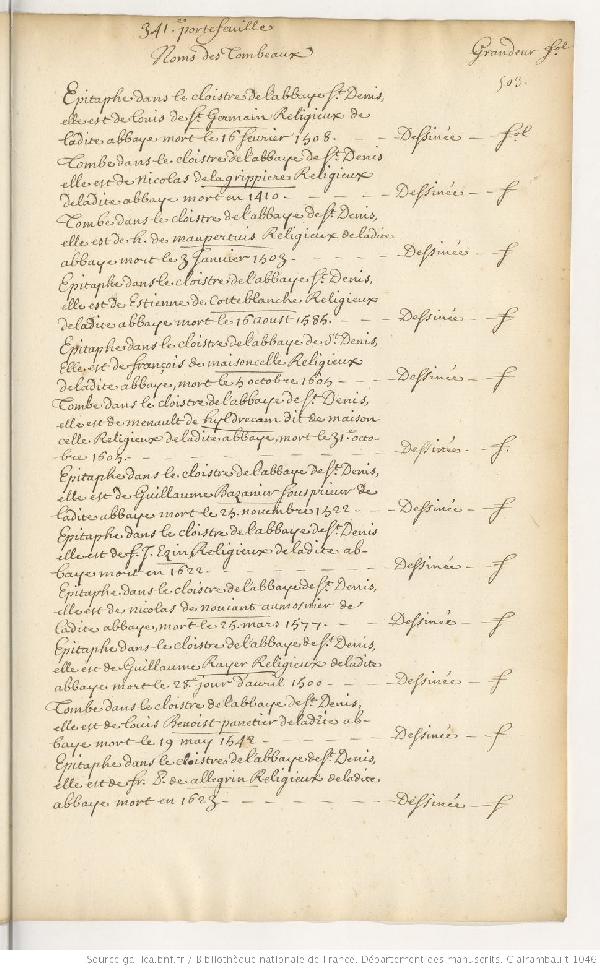 341.e portefeuille
Noms des Tombeaux Grandeur fol
503.
Epitaphe dans le cloistre de l'abbaye St. Denis,
elle est de louis de St. Germain Religieux de
ladite abbaye mort le 16 fevrier 1508. - Dessinée - fol
Tombe dans le cloistre de l'abbaye de St. Denis
elle est de Nicolas de la grippiere Religieux
de ladite abbaye mort en 1410. - - - Dessinée - f
Tombe dans le cloistre de l'abbaye de St. Denis,
elle est de h. de maupertuis Religieux de ladite
abbaye mort le 3 Janvier 1503. - - - Dessinée - f
Epitaphe dans le cloistre de l'abbaye St. Denis,
elle est de Estienne de Cotteblanche Religieux
de ladite abbaye mort le 16 aoust 1585. Dessinée - f
Epitaphe dans le cloistre de l'abbaye de St. Denis,
Elle est de françois de maisoncelle Religieux
de ladite abbaye, mort le 5 octobre 1605 - - - Dessinée - f
Tombe dans le cloistre de l'abbaye de St. Denis,
elle est de menault de dit de maison
celle Religieux de ladite abbaye, mort le 31.e octo-
bre 1605. - - Dessinée. - f.
Epitaphe dans le cloistre de l'abbaye de St. Denis,
elle est de Guillaume Bazanier sousprieur de
ladite abbaye mort le 25 novembre 1522 - - Dessinée - f
Epitaphe dans le cloistre de l'abbaye de St. Denis
elle est de f. J. Religieux de ladite ab-
baye mort en 1622 - - - Dessinée - f
Epitaphe dans le cloistre de l'abbaye de St. Denis,
elle est de nicolas de aumosnier de
ladite abbaye, mort le 25 mars 1577. - - Dessinée - f
Epitaphe dans le cloistre de l'abbaye de St. Denis,
elle est de Guillaume Rayer Religieux de ladite
abbaye mort le 28.e jour d'avril 1500 - - - Dessinée - f
Tombe dans le cloistre de l'abbaye de St. Denis,
elle est de louis Benoist panetier de ladite ab-
baye mort le 19 may 1542 - - - Dessinée - f
Epitaphe dans le cloistre de l'abbaye de St. Denis,
elle est de fr. P. de allegrin Religieux de ladite
abbaye mort en 1623 - - - - - Dessinée - f
Source gallica.bnf.fr / Bibliothèque nationale de France. Département des manuscrits. Clairambault 1046